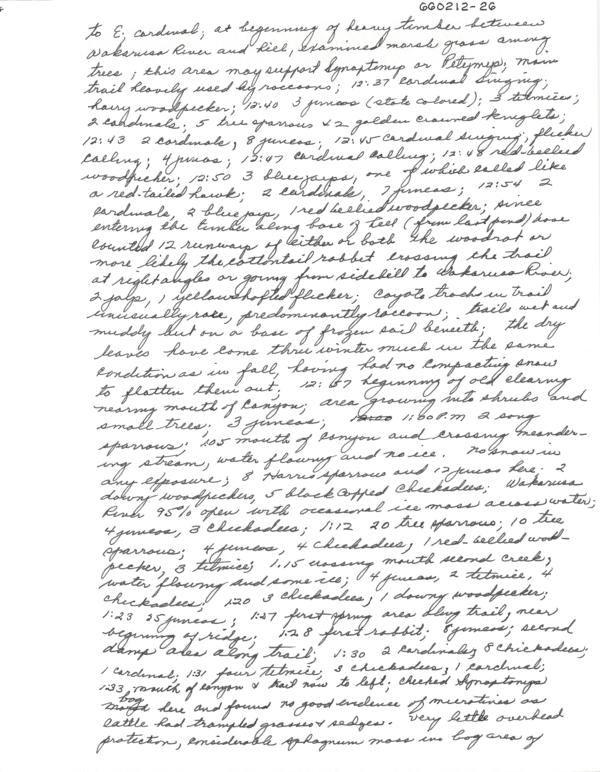 GG0212-26
to E; cardinal; at beginning of heavy timber between
Wakarusa River and hill, examined marsh grass among
trees; this area may support Synaptomys or Pitymys; main
trail heavily used by raccoons; 12:37 cardinal singing;
hairy woodpecker; 12:40 3 juncos (slate colored); 3 titmice;
2 cardinals; 5 tree sparrows & 2 golden crowned kinglets;
12:43 2 cardinals, 8 juncos; 12:45 cardinal singing, flicker
calling; 4 juncos; 12:47 cardinal calling; 12:48 red-bellied
woodpecker; 12:50 3 bluejays, one of which called like
a red-tailed hawk; 2 cardinals, 7 juncos; 12:54 2
cardinals, 2 bluejays, 1 red bellied woodpecker; since
entering the timber along base of hill (from last pond) have
counted 12 runways of either or both the woodrat or
more likely the cottontail rabbit crossing the trail
at right angles or going from sidehill to Wakarusa River;
2 jays, 1 yellowshafted flicker; Coyote tracks in trail
unusually rare, predominantly raccoon; trails wet and
muddy but on a base of frozen soil beneath; the dry
leaves have come thru winter much in the same
condition as in fall, having had no compacting snow
to flatten them out; 12:57 beginning of old clearing
nearing mouth of Canyon; area growing into shrubs and
small trees; 3 juncos; 1:00 P.M 2 song
sparrows; 1:05 mouth of Canyon and crossing meander-
ing stream, water flowing and no ice. No snow in
any exposure; 8 Harris sparrows and 12 juncos here. 2
downy woodpeckers, 5 black capped Chickadees; Wakarusa
River 95% open with occasional ice mass across water;
4 juncos, 3 Chickadees; 1:12 20 tree sparrows; 10 tree
sparrows; 4 juncos, 4 Chickadees; 1 red-bellied wood-
pecker, 3 titmice; 1:15 crossing mouth second creek,
water flowing and some ice; 4 juncos, 2 titmice, 4
chickadees; 1:20 3 Chickadees; 1 downy woodpecker;
1:23 25 juncos; 1:27 first spring area along trail, near
beginning of ridge; 1:28 first rabbit; 8 juncos; second
damp area along trail; 1:30 2 cardinals; 8 Chickadees;
1 cardinal; 1:31 four titmice, 3 chickadees; 1 cardinal;
1:33, mouth of canyon & trail now to left; checked Synaptomys
bog here and found no good evidence of microtines as
cattle had trampled grasses & sedges. Very little overhead
protection, considerable sphagnum moss in bog area of